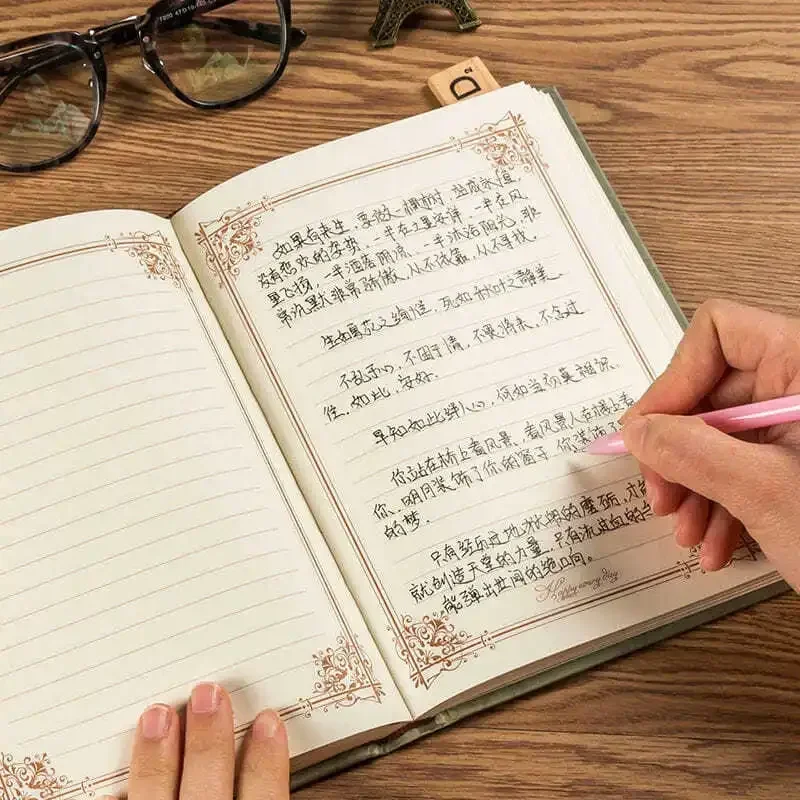 如果有来生，要做一棵树，站成永恒，
没有悲欢的姿势。一半在土里安详，一半在风
里飞扬，一半洒落阴凉，一半沐浴阳光，非
常沉默非常骄傲，从不依靠，从不寻找。
生如夏花之绚烂，死如秋叶之静美。
不乱于心，不困于情，不畏将来，不念过
往。如此，安好。
早知如此绊人心，何如当初莫相识。
你站在桥上看风景，看风景人在楼上看
你。明月装饰了你的窗子，你装饰了
的梦。
只有经历过地狱般的磨砺，才
就创造天堂的力量，只有流过血的
能弹出世间的绝响。
Happy every day
D